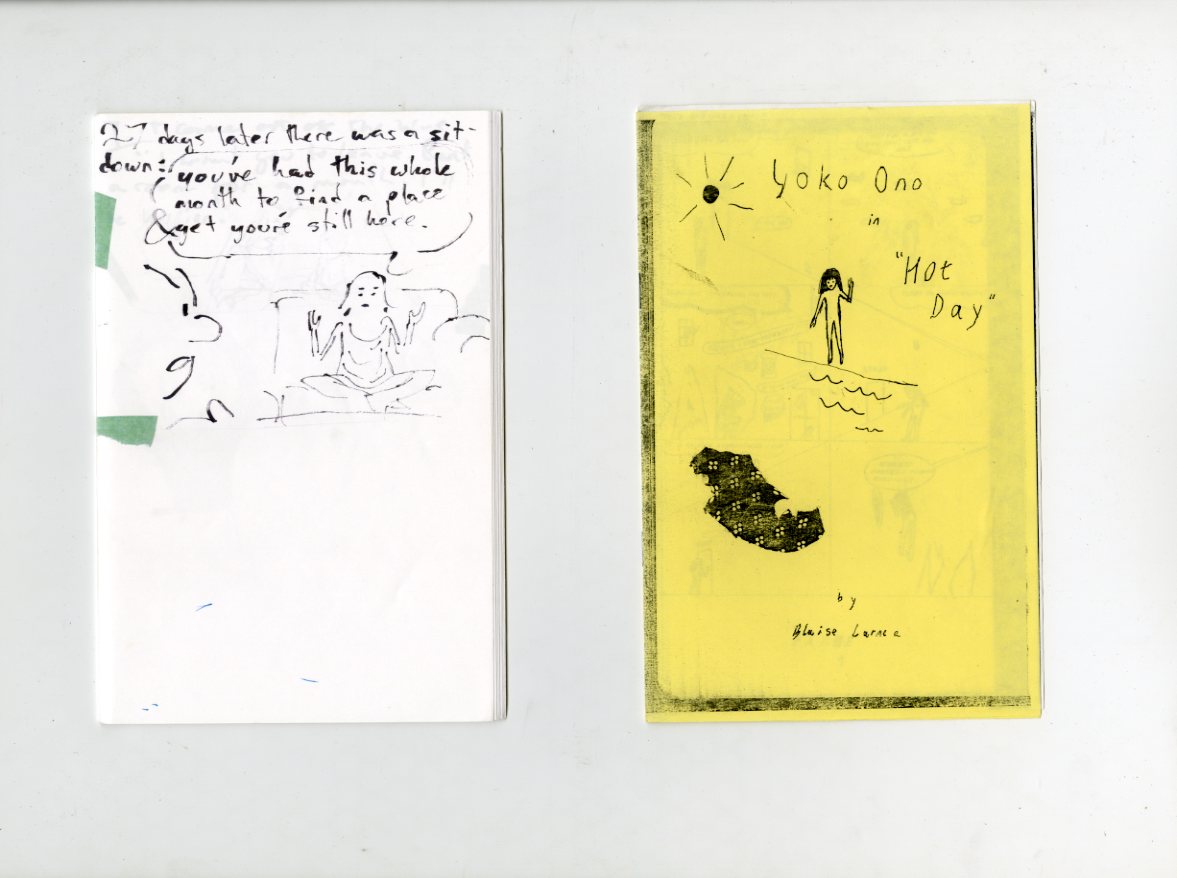 27 days later there was a sit-
down:
you've had this whole
month to find a place
& yet you're still here.
Yoko Ono
in
"Hot
Day"
by
Blaise
NO